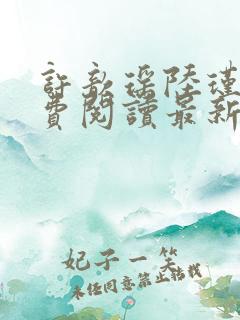 許歆瑤陸瑾
費閱讀最新
妃子一笑
未任同意禁止轉載